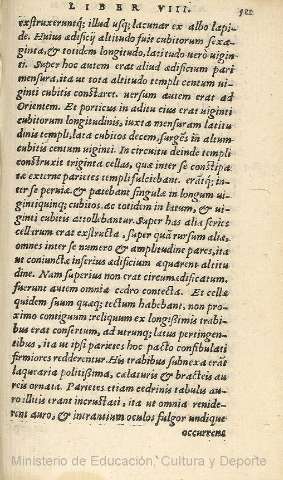 LIBER VIII.
extruxeruntq; illud usq; lacunar ex albo lapi-
de. Huius ædificij altitudo fuit cubitorum sexa-
ginta, & totidem longitudo, latitudo uerò uigin-
ti. Super hoc autem erat aliud ædificium pari
mensura, ita ut tota altitudo templi centum ui-
ginti cubitis constaret. uersum autem erat ad
Orientem. Et porticus in aditu eius erat uiginti
cubitorum longitudinis, iuxta mensuram latitu
dinis templi, lata cubitos decem, surgẽs in altum
cubitis centum uiginti. In circuitu deinde templi
construxit triginta cellas, quæ inter se constipa-
tæ externe parietes templi fulciebant. erãtq; in-
ter se peruiæ & patebant singulæ in longum ui-
gintiquinq; cubitos, ac totidem in latum, & ui-
ginti cubitis attollebantur. Super has alia series
cellarum erat exstructa, super quã rursum alia,
omnes inter se numero & amplitudine pares, ita
ut coniunctæ inferius ædificium æquarent altitu
dine. Nam superius non erat circumædificatum.
fuerunt autem omnia cedro contecta. Et cellæ
quidem suum quæq; tectum habebant, non pro
ximo contiguum: reliquum ex longißimis trabi
bus erat consertum, ad utrunq; latus pertingen-
tibus, ita ut ipsi parietes hoc pacto constibulati
firmiores redderentur. His trabibus subnexa erãt
laquearia politißima, cælaturis & bracteis au
reis ornata. Parietes etiam cedrinis tabulis au-
ro illitis erant incrustati, ita ut omnia renide-
rent auro, & intrantium oculos fulgor undique
occurrens
Ministerio de Educación, Cultura y Deporte